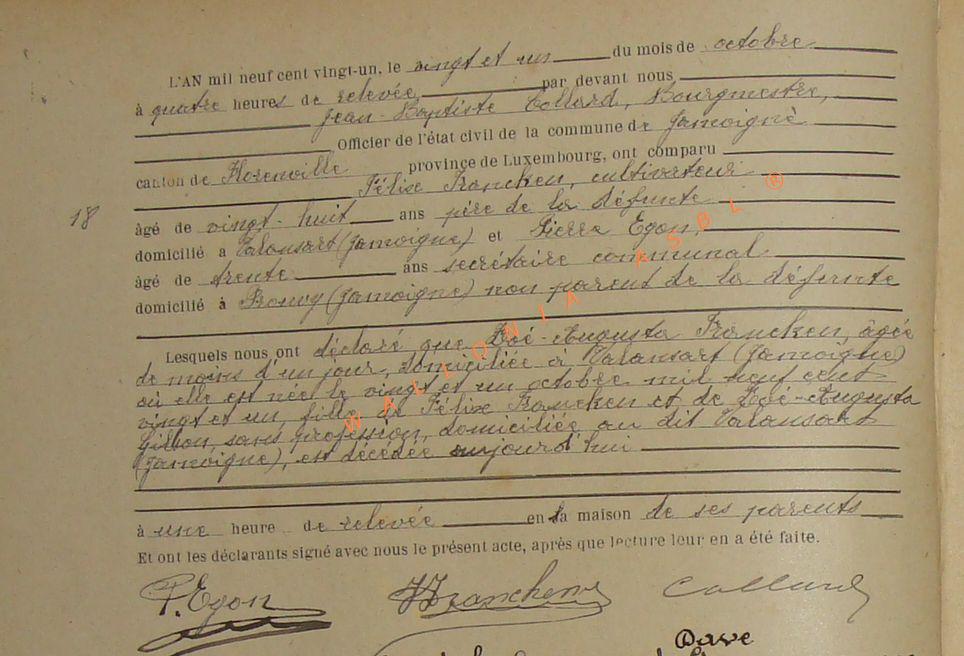 L'AN mil neuf cent vingt-un, le vingt et un du mois de octobre
à quatre heures de relevée, par devant nous
Jean-Baptiste Collard, Bourgmestre,
Officier de l'état civil de la commune de Jamoigne
canton de Florenville province de Luxembourg, ont comparu
Félix Francken, cultivateur
18
âgé de vingt-huit ans père de la défunte
domicilié à Valansart (Jamoigne) et Pierre Egon,
âgé de trente ans secrétaire communal
domicilié à Prouvy (Jamoigne) non parent de la défunte
Lesquels nous ont déclaré que Zoé-Augusta Francken, âgée
de moins d'un jour, domiciliée à Valansart (Jamoigne)
où elle est née le vingt et un octobre mil neuf cent
vingt et un, fille de Félix Francken et de Zoé-Augusta
Gillon, sans profession, domiciliée au dit Valansart
(Jamoigne), est décédée aujourd'hui
à une heure de relevée en la maison de ses parents
Et ont les déclarants signé avec nous le présent acte, après que lecture leur en a été faite.
P. Egon Francken Collard
Dave
WALLONIA ASBL ®